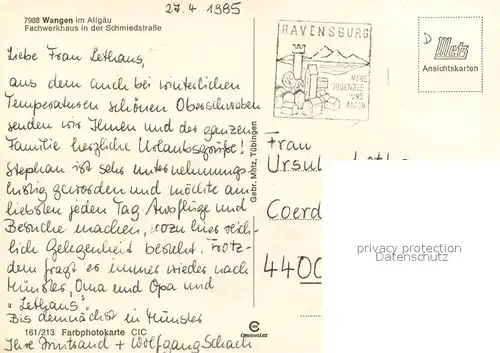 27.4.1985
7988 Wangen im Allgäu
Fachwerkhaus in der Schmiedstraße
Liebe Frau Lethaus,
aus dem auch bei winterlichen
Temperaturen schönen Oberschwaben
senden wir Ihnen und der ganzen
Familie herzliche Urlaubsgrüße!
Stephan ist sehr unternehmungs-
lustig geworden und möchte am
liebsten jeden Tag Ausflüge und
Besuche machen, wozu hier reich-
lich Gelegenheit besteht. Trotz-
dem fragt er immer wieder nach
Münster, Oma und Opa und
"Lethaus".
Bis demnächst in Münster
161/213 Farbphotokarte CIC
Ihre + Wolfgang Schach
Gebr. Metz, Tübingen
RAVENSBURG
NÄHE
BODENSEE
UND
ALPEN
D
Metz
Ansichtskarten
Frau
Ursul
Coerd
4400
privacy protection
Datenschutz